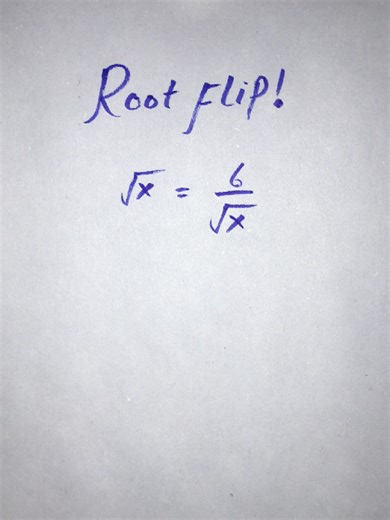 Root flip!
√x = 6/√x